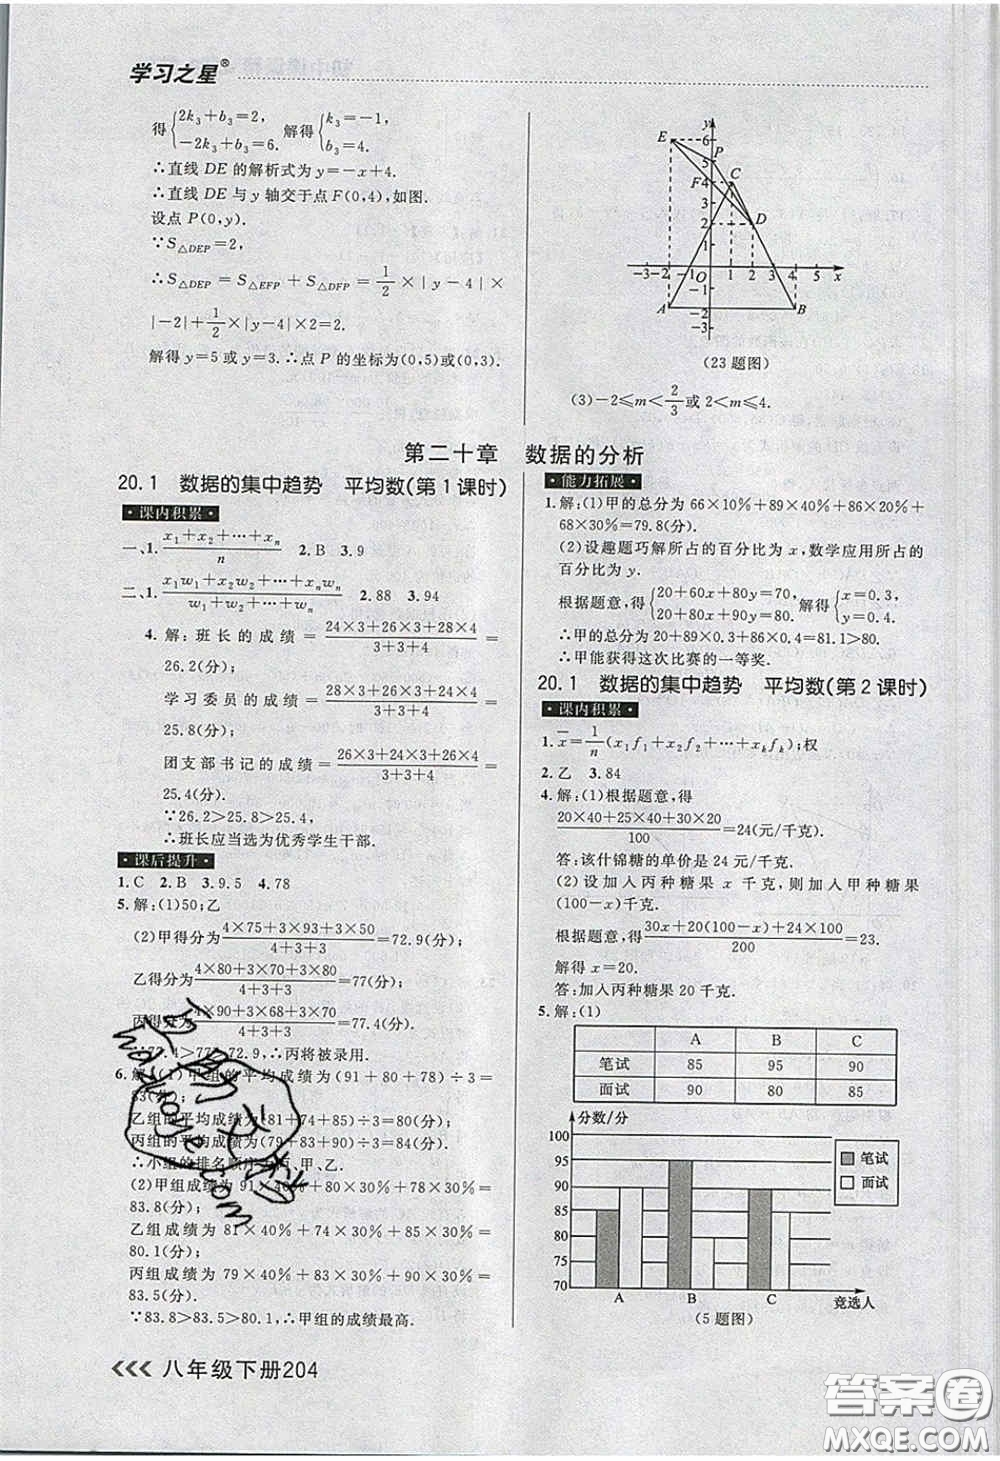 学习之星®
得{2k₃+b₃=2, -2k₃+b₃=6. 解得{k₃=-1, b₃=4.
∴直线 DE 的解析式为 y=-x+4.
∴直线 DE 与 y 轴交于点 F(0,4),如图.
设点 P(0,y).
∵S△DEP=2,
∴S△DEP=S△EFP+S△DFP=1/2×|y-4|×
|-2|+1/2×|y-4|×2=2.
解得 y=5 或 y=3.∴点 P 的坐标为(0,5)或(0,3).
y
E 6
5 P
F 4 C
3
2 D
1
-3 -2 -1 O 1 2 3 4 5 x
-1
A -2 B
-3
(23 题图)
(3)-2≤m<2/3或 2<m≤4.
第二十章 数据的分析
20.1 数据的集中趋势 平均数(第 1 课时)
·课内积累·
一、1. (x₁+x₂+…+xₙ)/n 2.B 3.9
二、1. (x₁w₁+x₂w₂+…+xₙwₙ)/(w₁+w₂+…+wₙ) 2.88 3.94
4.解:班长的成绩=(24×3+26×3+28×4)/(3+3+4)=
26.2(分);
学习委员的成绩=(28×3+26×3+24×4)/(3+3+4)=
25.8(分);
团支部书记的成绩=(26×3+24×3+26×4)/(3+3+4)=
25.4(分).
∵26.2>25.8>25.4,
∴班长应当选为优秀学生干部.
·课后提升·
1.C 2.B 3.9.5 4.78
5.解:(1)50;乙
(2)甲得分为(4×75+3×93+3×50)/(4+3+3)=72.9(分);
乙得分为(4×80+3×73+3×80)/(4+3+3)=77(分);
丙得分为(4×90+3×68+3×70)/(4+3+3)=77.4(分).
∵77.4>77>72.9,∴丙将被录用.
6.解:(1)甲组的平均成绩为(91+80+78)÷3=
83(分);
乙组的平均成绩为(81+74+85)÷3=80(分);
丙组的平均成绩为(79+83+90)÷3=84(分).
∴小组的排名顺序为丙、甲、乙.
(2)甲组成绩为 91×40%+80×30%+78×30%=
83.8(分);
乙组成绩为 81×40%+74×30%+85×30%=
80.1(分);
丙组成绩为 79×40%+83×30%+90×30%=
83.5(分).
∵83.8>83.5>80.1,∴甲组的成绩最高.
·能力拓展·
1.解:(1)甲的总分为 66×10%+89×40%+86×20%+
68×30%=79.8(分).
(2)设趣题巧解所占的百分比为 x,数学应用所占的
百分比为 y.
根据题意,得{20+60x+80y=70, 20+80x+90y=80. 解得{x=0.3, y=0.4.
∴甲的总分为 20+89×0.3+86×0.4=81.1>80.
∴甲能获得这次比赛的一等奖.
20.1 数据的集中趋势 平均数(第 2 课时)
·课内积累·
1.x̄=1/n(x₁f₁+x₂f₂+…+xₖfₖ);权
2.乙 3.84
4.解:(1)根据题意,得
(20×40+25×40+30×20)/100=24(元/千克).
答:该什锦糖的单价是 24 元/千克.
(2)设加入丙种糖果 x 千克,则加入甲种糖果
(100-x)千克.
根据题意,得(30x+20(100-x)+24×100)/200=23.
解得 x=20.
答:加入丙种糖果 20 千克.
5.解:(1)
A B C
笔试 85 95 90
面试 90 80 85
分数/分
100
95
90
85
80
75
70
A B C 竞选人
笔试
面试
(5 题图)
八年级下册204
hdzuoye.com
答案圈
MXQE.COM